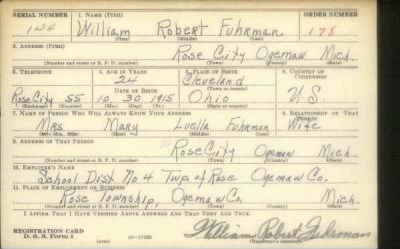 SERIAL NUMBER 1. NAME (Print) ORDER NUMBER
144 William Robert Fuhrman 178
(First) (Middle) (Last)
2. ADDRESS (Print)
Rose City Ogemaw Mich.
(Number and street or R. F. D. number) (Town) (County) (State)
3. TELEPHONE 4. AGE IN YEARS 5. PLACE OF BIRTH 6. COUNTRY OF CITIZENSHIP
24 Cleveland
DATE OF BIRTH (Town or county)
Rose City 55 10 30 1915 Ohio U.S.
(Exchange) (Number) (Mo.) (Day) (Yr.) (State or country)
7. NAME OF PERSON WHO WILL ALWAYS KNOW YOUR ADDRESS 8. RELATIONSHIP OF THAT PERSON
Mrs Mary Luella Fuhrman Wife
(Mr., Mrs., Miss) (First) (Middle) (Last)
9. ADDRESS OF THAT PERSON
Rose City Ogemaw Mich.
(Number and street or R. F. D. number) (Town) (County) (State)
10. EMPLOYER'S NAME
School Dist No. 4 Twp of Rose Ogemaw Co.
11. PLACE OF EMPLOYMENT OR BUSINESS
Rose Township, Ogemaw Co. Mich.
(Number and street or R. F. D. number) (Town) (County) (State)
I AFFIRM THAT I HAVE VERIFIED ABOVE ANSWERS AND THAT THEY ARE TRUE.
REGISTRATION CARD
D. S. S. Form 1 William Robert Fuhrman
(Registrant's signature)